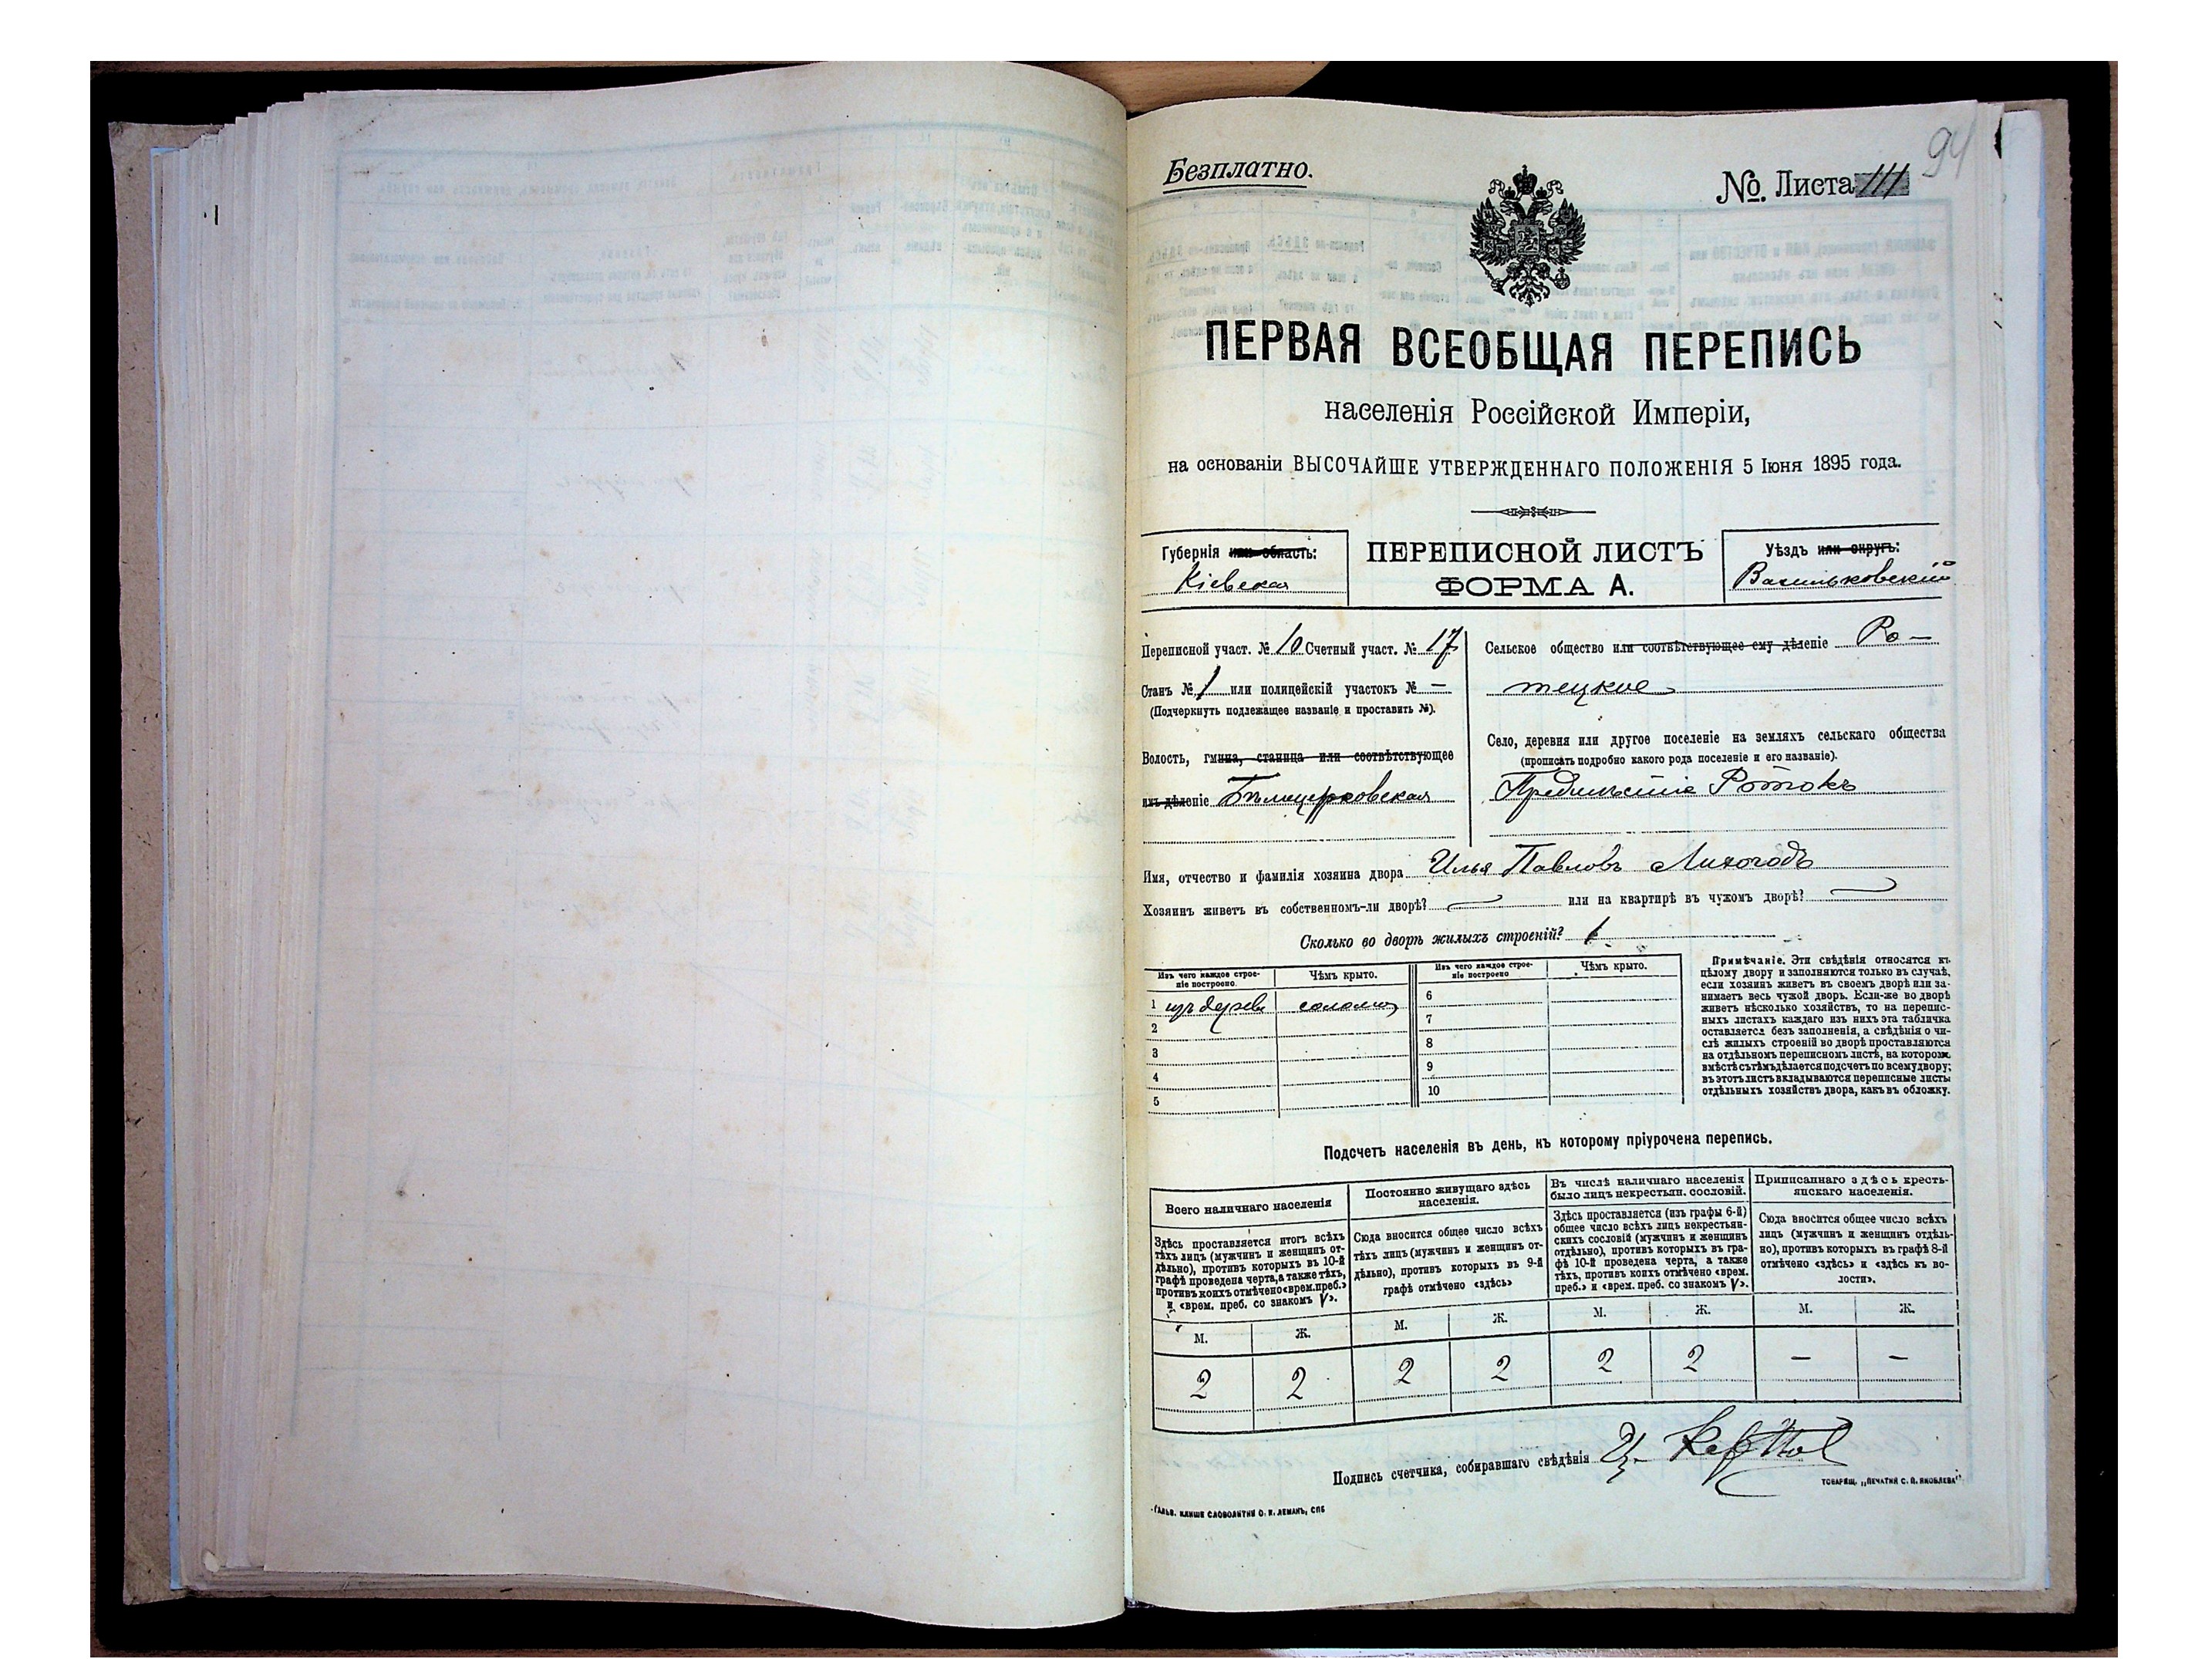 94
Безплатно.
№ Листа 111
ПЕРВАЯ ВСЕОБЩАЯ ПЕРЕПИСЬ
населенія Россійской Имперіи,
на основаніи ВЫСОЧАЙШЕ УТВЕРЖДЕННАГО ПОЛОЖЕНІЯ 5 Іюня 1895 года.
Губернія или область:
Кіевская
ПЕРЕПИСНОЙ ЛИСТЪ
ФОРМА А.
Уѣздъ или округъ:
Васильковскій
Переписной участ. № 10 Счетный участ. № 17
Станъ № 1 или полицейскій участокъ № —
(Подчеркнуть подлежащее названіе и проставить №).
Волость, гмина, станица или соотвѣтствующее
имъ дѣленіе Бѣлоцерковская
Сельское общество или соотвѣтствующее ему дѣленіе Ро-
тецкое
Село, деревня или другое поселеніе на земляхъ сельскаго общества
(прописать подробно какого рода поселеніе и его названіе).
Предмѣстіе Ротокъ
Имя, отчество и фамилія хозяина двора Илья Павловъ Лихогодъ
Хозяинъ живетъ въ собственномъ-ли дворѣ? или на квартирѣ въ чужомъ дворѣ?
Сколько во дворѣ жилыхъ строеній? 1
Изъ чего каждое строе-
ніе построено.
Чѣмъ крыто.
Изъ чего каждое строе-
ніе построено
Чѣмъ крыто.
1 изъ дерева соломы 6
2 7
3 8
4 9
5 10
Примѣчаніе. Эти свѣдѣнія относятся къ
цѣлому двору и заполняются только въ случаѣ,
если хозяинъ живетъ въ своемъ дворѣ или за-
нимаетъ весь чужой дворъ. Если-же во дворѣ
живетъ нѣсколько хозяйствъ, то на перепис-
ныхъ листахъ каждаго изъ нихъ эта табличка
оставляется безъ заполненія, а свѣдѣнія о чи-
слѣ жилыхъ строеній во дворѣ проставляются
на отдѣльномъ переписномъ листѣ, на которомъ
вмѣстѣ съ тѣмъ дѣлается подсчетъ по всему двору;
въ этотъ листъ вкладываются переписные листы
отдѣльныхъ хозяйствъ двора, какъ въ обложку.
Подсчетъ населенія въ день, къ которому пріурочена перепись.
Всего наличнаго населенія
Здѣсь проставляется итогъ всѣхъ
тѣхъ лицъ (мужчинъ и женщинъ от-
дѣльно), противъ которыхъ въ 10-й
графѣ проведена черта, а также тѣхъ,
противъ коихъ отмѣчено «врем. преб.»
и «врем. преб. со знакомъ V».
Постоянно живущаго здѣсь
населенія.
Сюда вносится общее число всѣхъ
тѣхъ лицъ (мужчинъ и женщинъ от-
дѣльно), противъ которыхъ въ 9-й
графѣ отмѣчено «здѣсь»
Въ числѣ наличнаго населенія
было лицъ некрестьян. сословій.
Здѣсь проставляется (изъ графы 6-й)
общее число всѣхъ лицъ некрестьян-
скихъ сословій (мужчинъ и женщинъ
отдѣльно), противъ которыхъ въ гра-
фѣ 10-й проведена черта, а также
тѣхъ, противъ коихъ отмѣчено «врем.
преб.» и «врем. преб. со знакомъ V».
Приписаннаго здѣсь кресть-
янскаго населенія.
Сюда вносится общее число всѣхъ
лицъ (мужчинъ и женщинъ отдѣль-
но), противъ которыхъ въ графѣ 8-й
отмѣчено «здѣсь» и «здѣсь къ во-
лости».
М. Ж. М. Ж. М. Ж. М. Ж.
2 2 2 2 2 2 — —
Подпись счетчика, собиравшаго свѣдѣнія
ТОВАРИЩ. „ПЕЧАТНЯ С. П. ЯКОВЛЕВА"
ГАЛЬВ. КЛИШЕ СЛОВОЛИТНИ О. И. ЛЕМАНЪ, СПБ